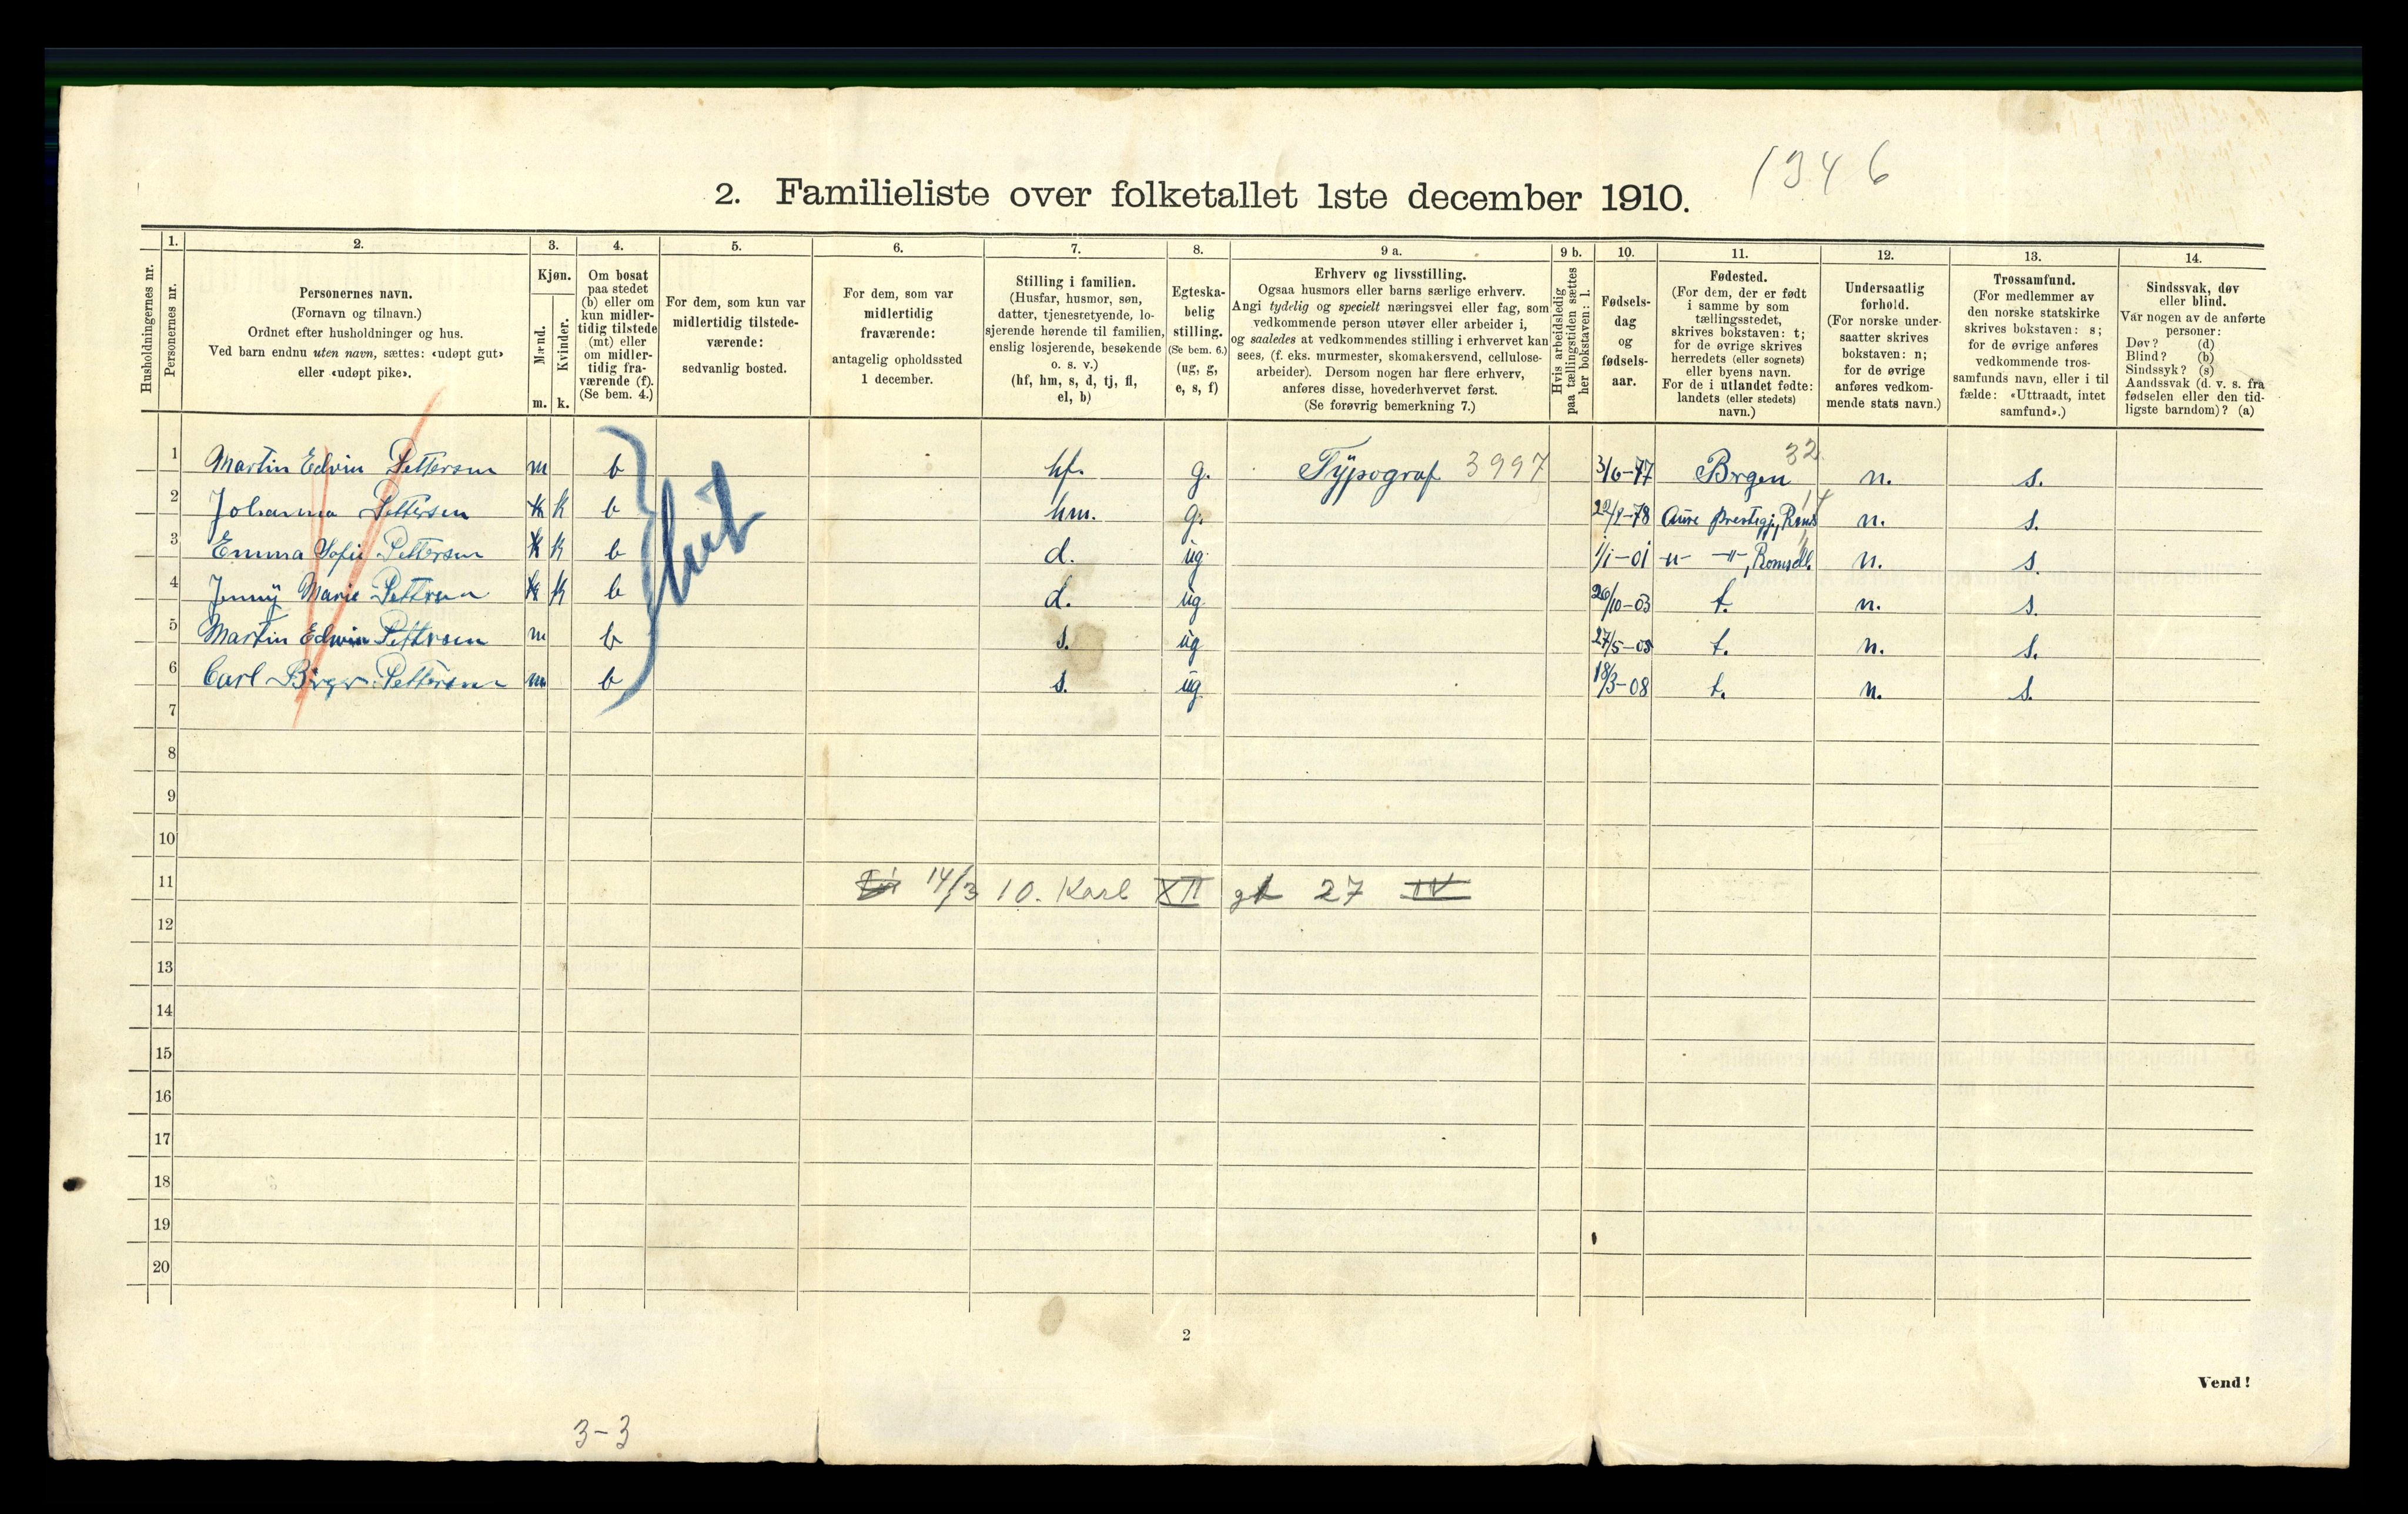 1346
2. Familieliste over folketallet 1ste december 1910.
Husholdningernes nr.
1.
Personernes nr.
2.
Personernes navn.
(Fornavn og tilnavn.)
Ordnet efter husholdninger og hus.
Ved barn endnu uten navn, sættes: «udøpt gut»
eller «udøpt pike».
3.
Kjøn.
Mænd.
m.
Kvinder.
k.
4.
Om bosat
paa stedet
(b) eller om
kun midler-
tidig tilstede
(mt) eller
om midler-
tidig fra-
værende (f).
(Se bem. 4.)
5.
For dem, som kun var
midlertidig tilstede-
værende:
sedvanlig bosted.
6.
For dem, som var
midlertidig
fraværende:
antagelig opholdssted
1 december.
7.
Stilling i familien.
(Husfar, husmor, søn,
datter, tjenesretyende, lo-
sjerende hørende til familien,
enslig losjerende, besøkende
o. s. v.)
(hf, hm, s, d, tj, fl,
el, b)
8.
Egteska-
belig
stilling.
(Se bem. 6.)
(ug, g,
e, s, f)
9 a.
Erhverv og livsstilling.
Ogsaa husmors eller barns særlige erhverv.
Angi tydelig og specielt næringsvei eller fag, som
vedkommende person utøver eller arbeider i,
og saaledes at vedkommendes stilling i erhvervet kan
sees, (f. eks. murmester, skomakersvend, cellulose-
arbeider). Dersom nogen har flere erhverv,
anføres disse, hovederhvervet først.
(Se forøvrig bemerkning 7.)
9 b.
Hvis arbeidsledig
paa tællingstiden sættes
her bokstaven: l.
10.
Fødsels-
dag
og
fødsels-
aar.
11.
Fødested.
(For dem, der er født
i samme by som
tællingsstedet,
skrives bokstaven: t;
for de øvrige skrives
herredets (eller sognets)
eller byens navn.
For de i utlandet fødte:
landets (eller stedets)
navn.)
12.
Undersaatlig
forhold.
(For norske under-
saatter skrives
bokstaven: n;
for de øvrige
anføres vedkom-
mende stats navn.)
13.
Trossamfund.
(For medlemmer av
den norske statskirke
skrives bokstaven: s;
for de øvrige anføres
vedkommende tros-
samfunds navn, eller i til
fælde: «Uttraadt, intet
samfund».)
14.
Sindssvak, døv
eller blind.
Var nogen av de anførte
personer:
Døv? (d)
Blind? (b)
Sindssyk? (s)
Aandssvak (d. v. s. fra
fødselen eller den tid-
ligste barndom)? (a)
1 Martin Edvin Pettersen m b hf. g. Typograf 3997 3/6-77 Brgen 32 n. s.
2 Johanna Pettersen k k b hm. g. 22/8-78 Aure prestegj, Roms 14 n. s.
3 Emma Sofie Pettersen k k b d. ug 1/1-01 -"- -"-, Romsdl. n. s.
4 Jenny Marie Pettersen k k b d. ug 26/10-03 t. n. s.
5 Martin Edwin Pettersen m b s. ug 27/5-05 t. n. s.
6 Carl Birger Pettersen m b s. ug 18/3-08 t. n. s.
7
8
9
10
11 14/3 10. Karl XII gt 27 IV
12
13
14
15
16
17
18
19
20
2
Vend!
3-3